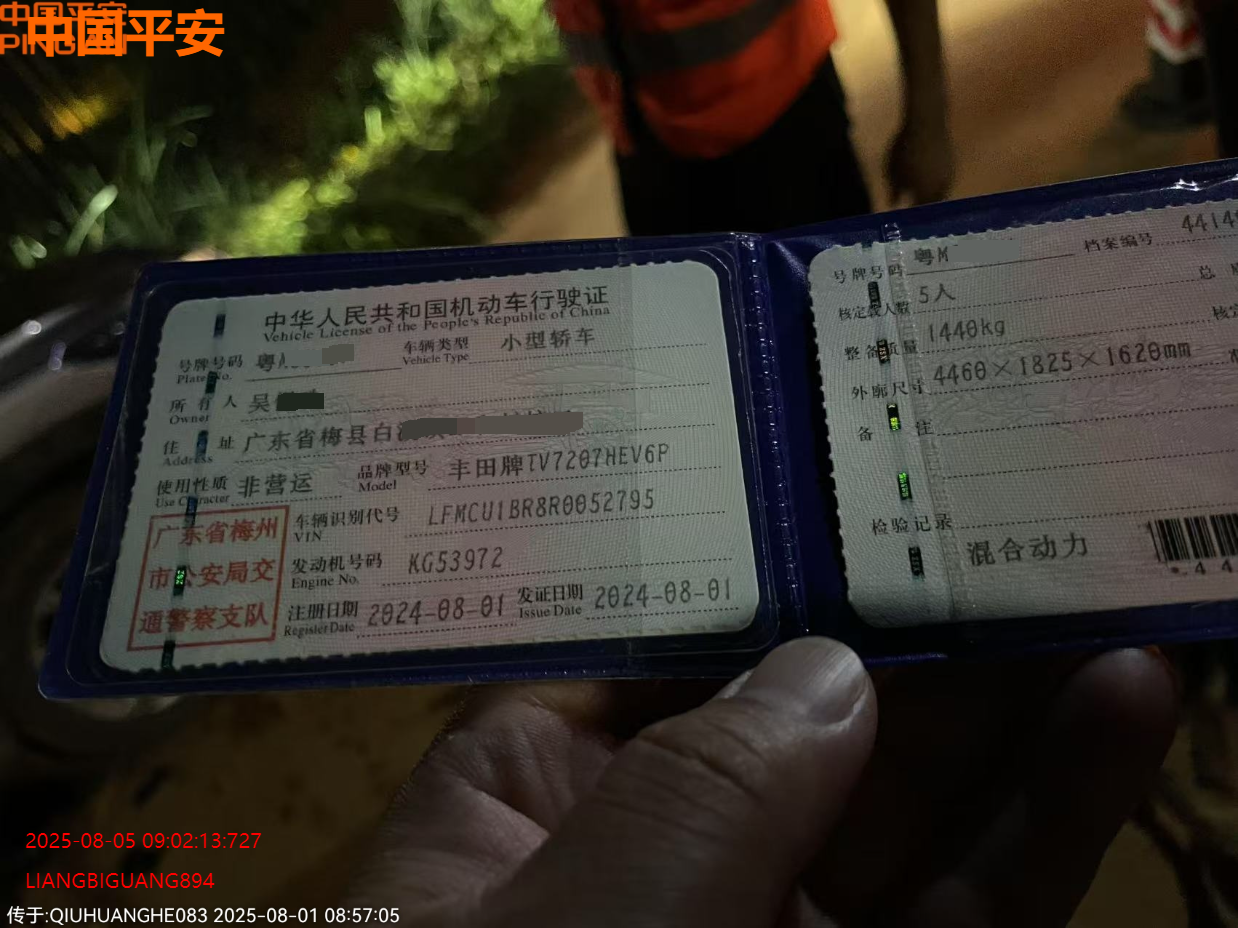 中国平安
中国平安
PING
中华人民共和国机动车行驶证
Vehicle License of the People's Republic of China
号牌号码 粤
Plate No.
车辆类型 小型轿车
Vehicle Type
所有人 吴
Owner
住址 广东省梅县白
Address
使用性质 非营运
Use Character
品牌型号 丰田牌TV7207HEV6P
Model
广东省梅州
市公安局交
通警察支队
车辆识别代号 LFMCU1BR8R0052795
VIN
发动机号码 KG53972
Engine No.
注册日期 2024-08-01
Register Date
发证日期 2024-08-01
Issue Date
号牌号码 粤M
档案编号 4414
核定载人数 5人
总
整备质量 1440kg
核定
外廓尺寸 4460×1825×1620mm
备注
检验记录
混合动力
*44
2025-08-05 09:02:13:727
LIANGBIGUANG894
传于:QIUHUANGHE083 2025-08-01 08:57:05